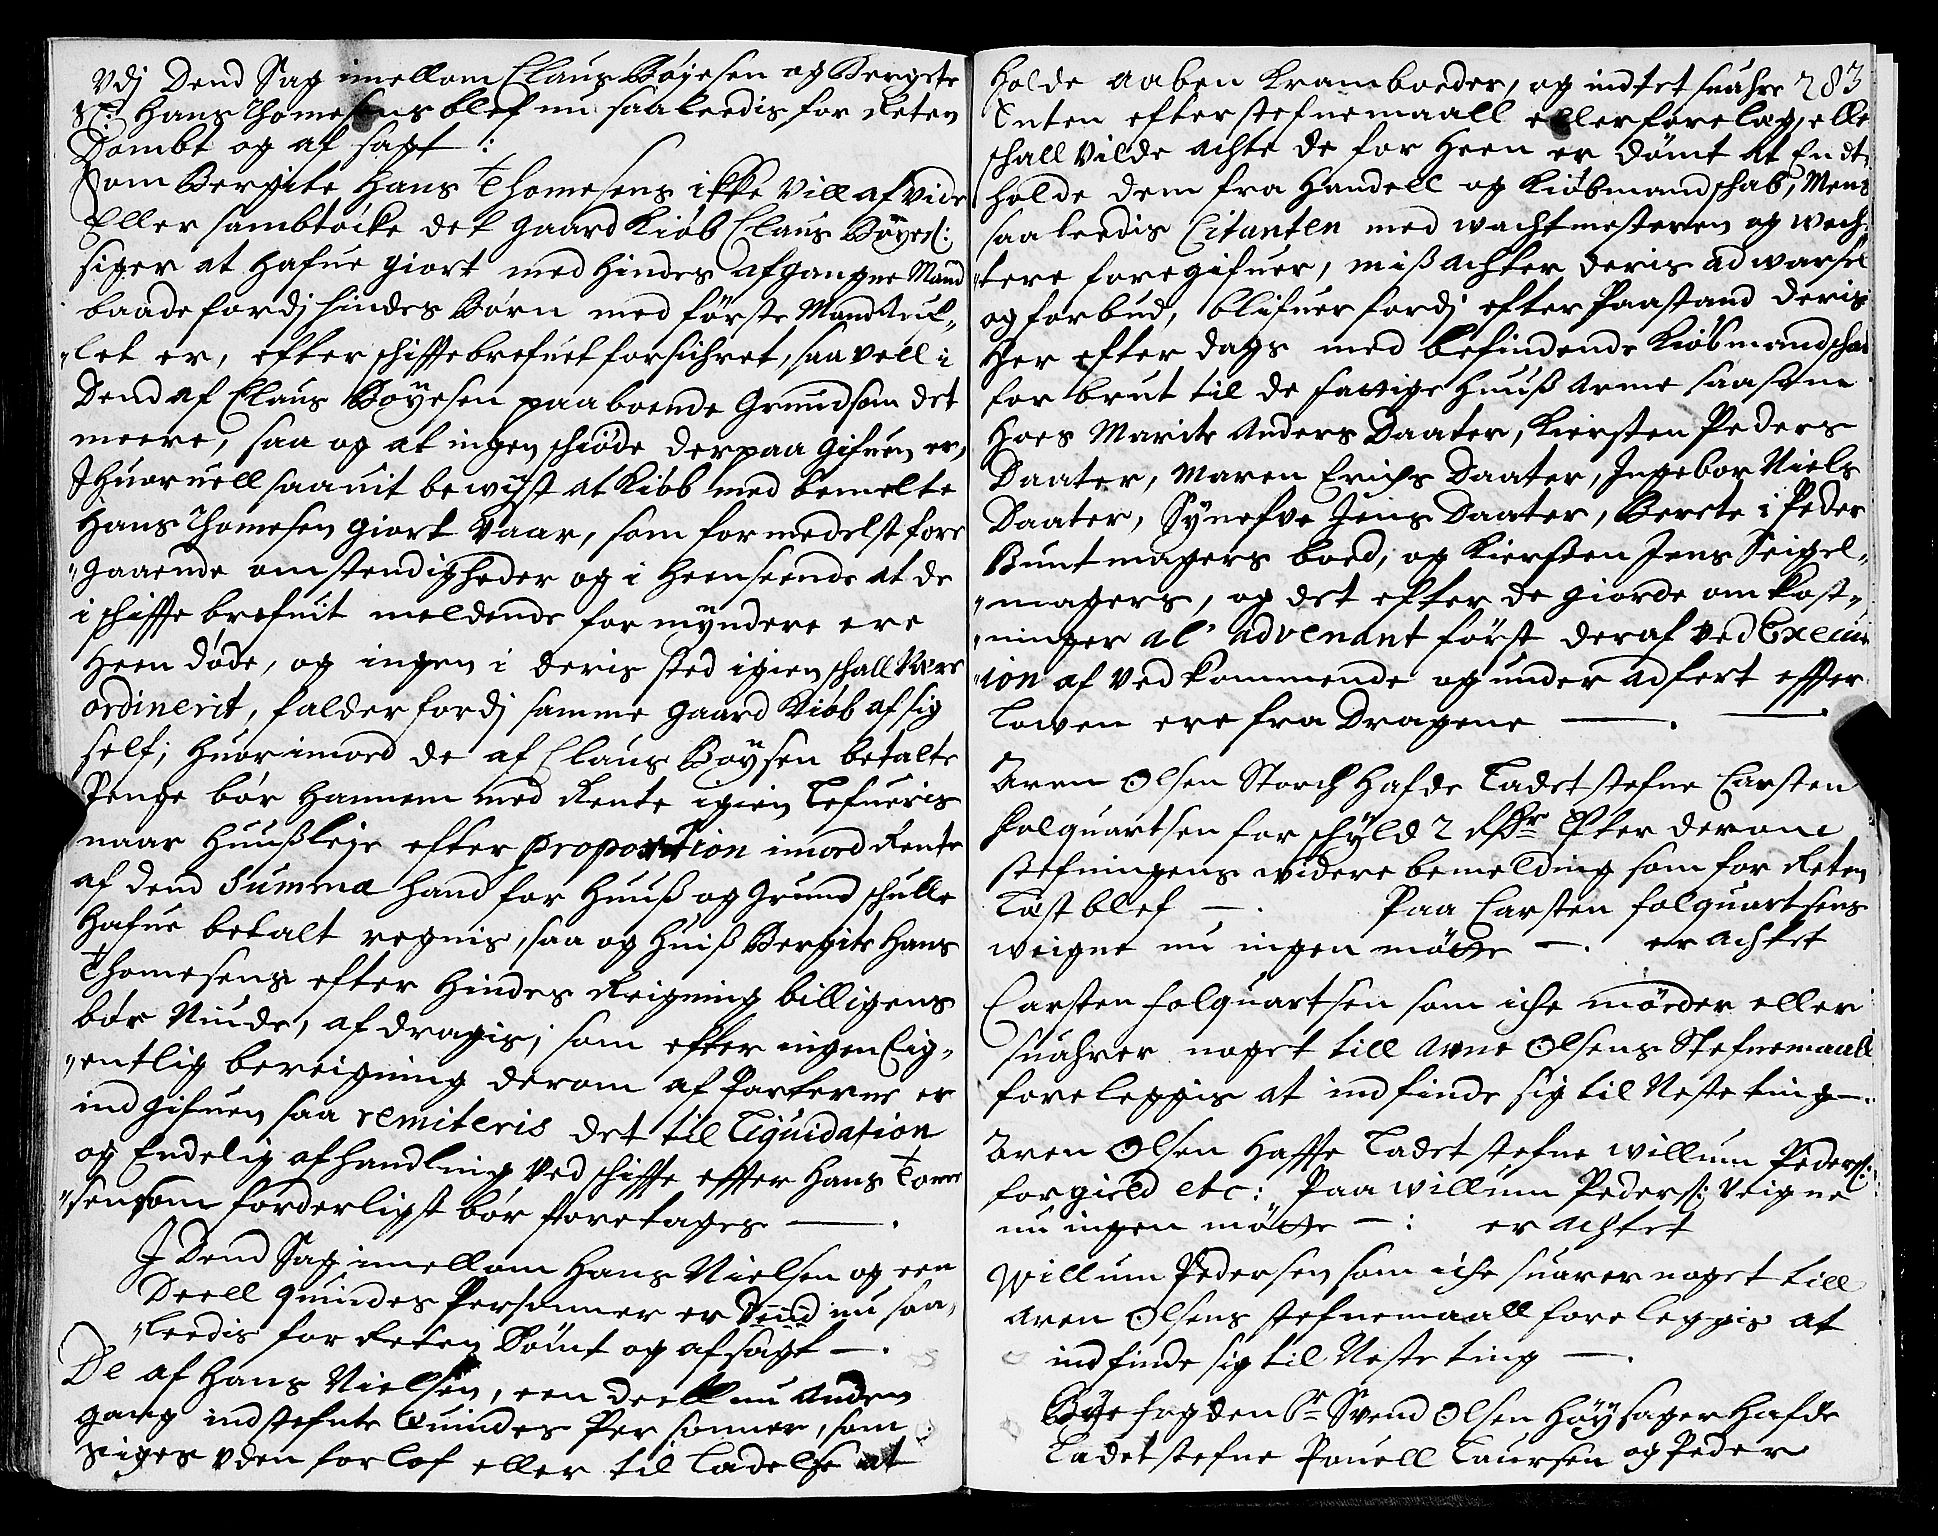 Vdj Dend Sag imellom Claus Böjesen og Bergete
Sl: Hans Thomesens blef nu saaleedis for Reten
Dömbt og af sagt :
Som Bergite Hans Thomesens ikke vill af vide
Eller sambtöcke det gaard Kiöb Claus Böyes:
siger at hafue giort med hindes afgangne Mand
baade fordj hindes Börn med förste Mand Auf„
„let er, efter schiftebrefuet forsichret, saa vell i
Dend af Claus Böyesen paaboende Grund som det
meere, saa og at ingen schiöde derpaa gifuen er,
Ihuoruell saauit bewist at Kiöb med bemelte
Hans Thomesen giort Vaar, som formedelst fore
„gaaende omstendigheder og i Heenseende at de
i schifte brefuit meldende formyndere ere
Heen döde, og ingen i deris sted igien schall Være
ordinerit, falder fordj samme gaard Kiöb af sig
self; Huorimod de af Claus Böysen betalte
Penge bör Hannem med Rente igien lefueris
naar Huußleje efter proportion imod Rente
af dend Summa hand for Huuß og Grund schulle
Hafue betalt regnis, saa og huiß Bergite Hans
Thomesens efter Hindes Reigning billigens
bör Niude, afdragis; som efter ingen Eig„
„entlig bereigning derom af Parterne er
ind gifuen saa remiteris det til Liquidation
og Endelig afhandling Ved schifte effter Hans Tome
„sen som forderligst bör foretages — .
J Dend Sag imellom Hans Nielsen og een
Deell quindes Personner er Dend nu saa„
„leedis for Reten Dömt og afsagt — .
De af Hans Nielsen, een deell nu Anden
gang indstefnte Quindes Personner, som
siges vden forlof eller til ladelse at
holde aaben kramboeder, og indtet suahre 283
Enten efter stefnemaall eller forelag, elle
schall vilde achte de for Heen er dömt at Endt
holde dem fra Handell og Kiöbmandschab, Mens
saaleedis Citanten med wachtmesteren og wech„
„tere foregifuer, mißachter deris adwarsel
og forbud, blifuer fordj efter Paastand deris
Her efter dags med befindende Kiöbmandschab
forbrut til de fattige Huuß Arme saasom
Hoes Marite Anders Daater, Kiersten Peders
Daater, Maren Erichs Daater, Ingebor Niels
Daater, Synefve Jens Daater, Berete i Peder
Buntmagers boed, og Kiersten Jens Seigel„
„magers, og det efter de giorde omkost„
„ninger al' advenant först deraf ved Execu
„ion af vedkommende og under adfert effter
Lowen ere fra Dragene — . —
Aren Olsen Storch Hafde Ladet stefne Carsten
folquartsen for schyld 2 Rdr Efter derom
stefningens widere bemelding som for Reten
Läst blef — . Paa Carsten folquartsens
weigne nu ingen mötte — . er achtet
Carsten folquartsen som iche möder eller
suahrer noget till Arne Olsens Stefnemaall
foreleggis at indfinde sig til Neste ting — .
Aren Olsen Haffe Ladet stefne willum Peders:
for gield etc: Paa willum Peders: Veigne
nu ingen mötte — : er achtet
Willum Pedersen som iche suarer noget till
Aren Olsens stefnemaall foreleggis at
indfinde sig til Neste ting — .
Byefogden Sr Svend Olsen Höysager Hafde
Ladet stefne Pouell Laursen og Peder